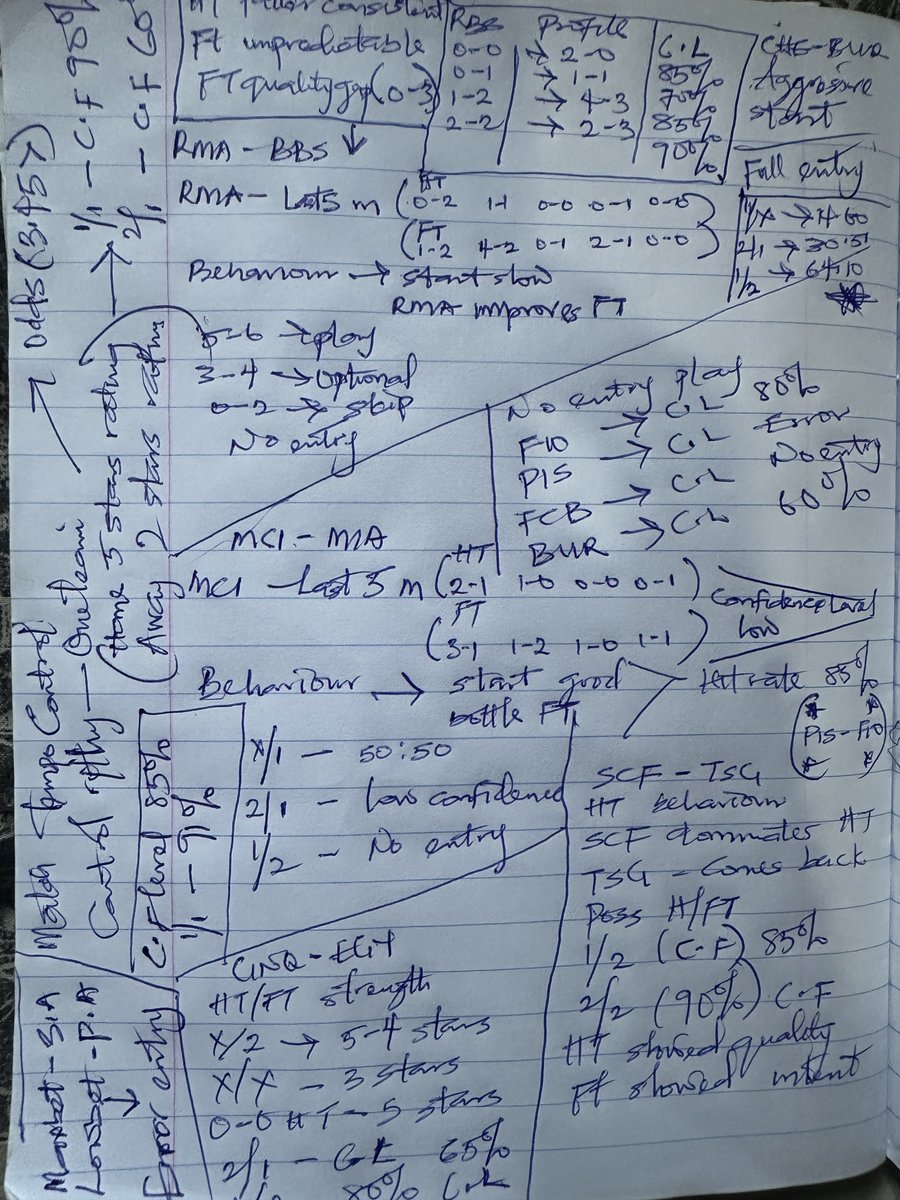 Ft unpredictable
FT quality gap (0-3)
RBS
0-0
0-1
1-2
2-2
Profile
→ 2-0
→ 1-1
→ 4-3
→ 2-3
C.L
85%
75%
85%
90%
CHE-BUR
Aggressive
start
RMA - BBS ↓
RMA - Last 5 m
HT
(0-2 1-1 0-0 0-1 0-0)
FT
(1-2 4-2 0-1 2-1 0-0)
Behaviour → start slow
RMA improves FT
Full entry
1/X → 14.60
2/1 → 30.51
1/2 → 64.10
5-6 → play
3-4 → Optional
0-2 → skip
No entry
No entry play
FIO → C.L 80%
PIS → C.L Error
FCB → C.L No entry
BUR → C.L 60%
MCI - MIA
MCI - Last 5 m
HT
(2-1 1-0 0-0 0-1)
FT
(3-1 1-2 1-0 1-1)
Confidence level
low
Behaviour → start good
bottle FT
Hit rate 85%
(PIS-FIO)
X/1 - 50:50
2/1 - Low confidence
1/2 - No entry
C.F level 85%
1/1 - 91%
SCF - TSG
HT behaviour
SCF dominates HT
TSG - Comes back
Poss H/FT
1/2 (C-F) 85%
2/2 (90%) C.F
HT showed quality
Ft showed intent
HT/FT strength
X/2 → 5-4 stars
X/X - 3 stars
0-0 HT - 5 stars
2/1 - 65%
80% C.L
Match Tempo Control
Control - One team → odds (3.45>)
(Home 3 stars rating → 1/1 - C.F 90%
Away 2 stars rating) 2/1 - C.F 60%
Error entry